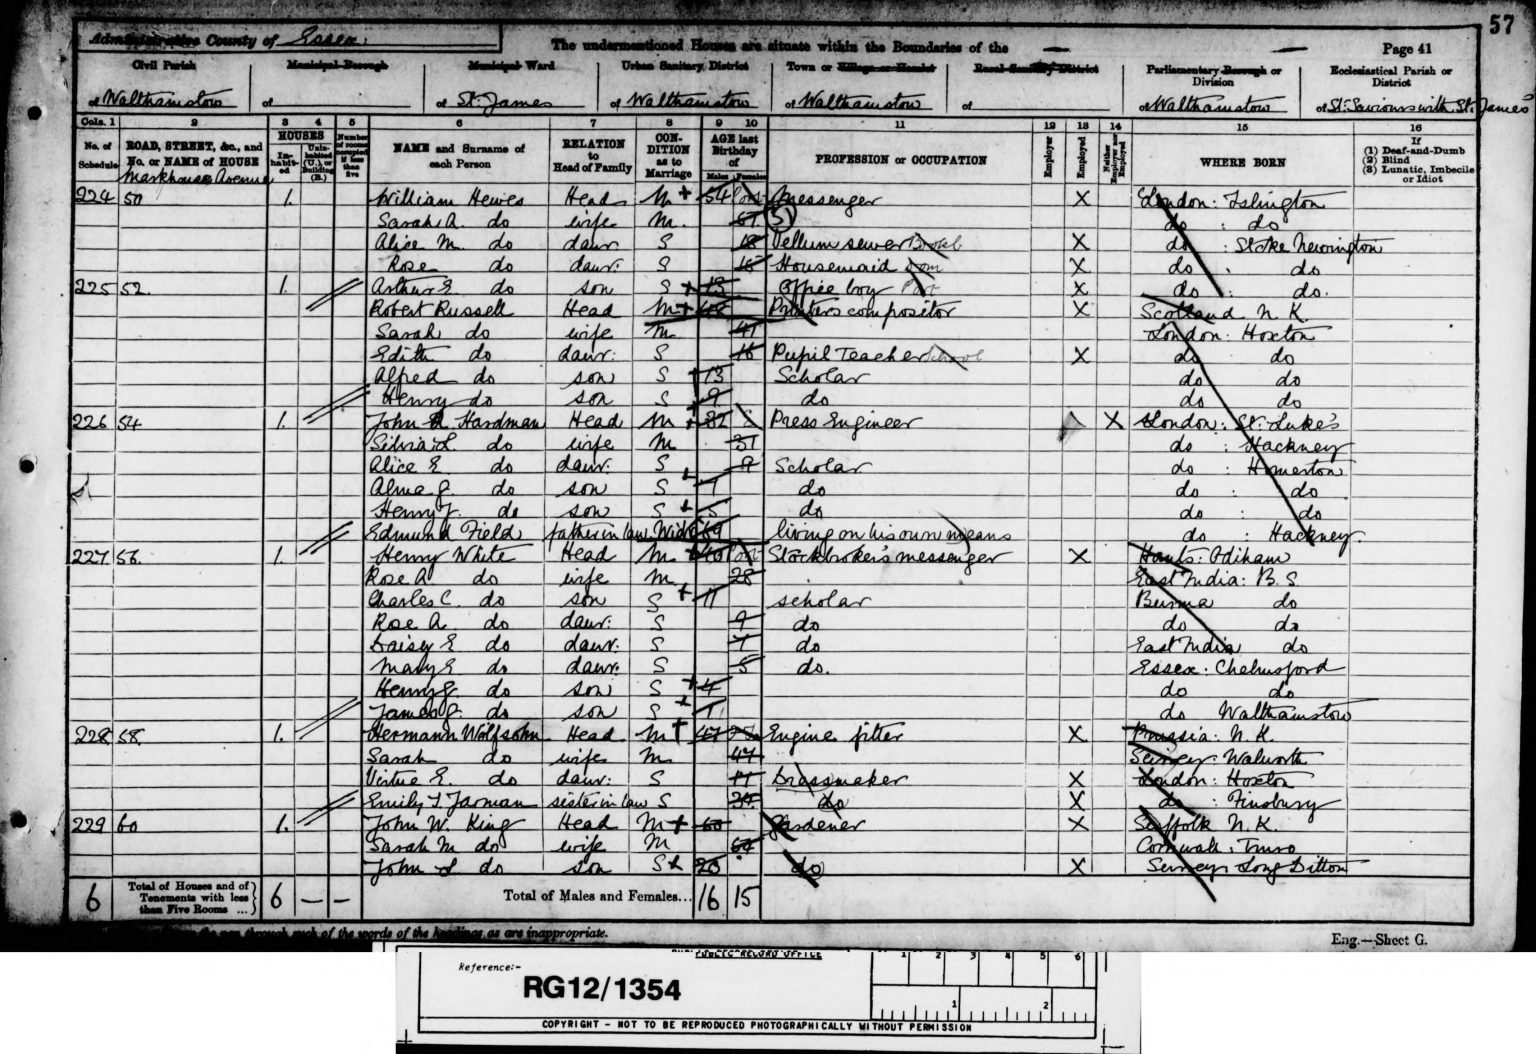 57
Administrative County of Essex.
The undermentioned Houses are situate within the Boundaries of the
Page 41
Civil Parish
Municipal Borough
Municipal Ward
Urban Sanitary District
Town or Village or Hamlet
Rural Sanitary District
Parliamentary Borough or Division
Ecclesiastical Parish or District
of Walthamstow of of St. James of Walthamstow of Walthamstow of of Walthamstow of St. Saviours with St. James
Cols. 1 2 3 4 5 6 7 8 9 10 11 12 13 14 15 16
No. of Schedule
ROAD, STREET, &c., and No. or NAME of HOUSE
HOUSES
Inhabited
Uninhabited (U.), or Building (B.)
Number of rooms occupied if less than five
NAME and Surname of each Person
RELATION to Head of Family
CONDITION as to Marriage
AGE last Birthday of
Males Females
PROFESSION or OCCUPATION
Employer
Employed
Neither Employer nor Employed
WHERE BORN
If (1) Deaf-and-Dumb (2) Blind (3) Lunatic, Imbecile or Idiot
Markhouse Avenue
224 50 1. William Hewes Head M 54 Messenger X London: Islington
Sarah A. do wife M. 51 do : do
Alice M. do daur S 18 Vellum sewer X do : Stoke Newington
Rose do daur: S 15 Housemaid Dom X do : do
225 52. 1. Arthur E. do son S 13 Office boy X do : do.
Robert Russell Head M 48 Printers compositor X Scotland N. K.
Sarah do wife M 41 London: Hoxton
Edith do daur: S 16 Pupil Teacher School X do do
Alfred do son S 13 Scholar do do
Henry do son S 9 do do do
226 54 1. John Hardman Head M 32 Press Engineer X London: St. Luke's
Silvia L. do wife M 31 do : Hackney
Alice E. do daur: S 9 Scholar do : Homerton
Alma J. do son S 7 do do : do
Henry J. do son S 5 do do : do
Edmund Field father in law Widr 69 living on his own means do : Hackney
227 56. 1. Henry White Head M 40 Stockbroker's messenger X Hants: Odiham
Rose A. do wife M 28 East India: B. S
Charles C. do son S 11 scholar Burma do
Rose A. do daur: S 9 do do do
Daisy E do daur: S 7 do East India do
Mary E do daur: S 5 do. Essex: Chelmsford
Henry J. do son S 4 do do
James J. do son S 1 do Walthamstow
228 58. 1. Hermann Wolfsohn Head M 47 Engine fitter X Prussia: N. K.
Sarah do wife M 47 Surrey: Walworth
Virtue E. do daur: S 17 Dressmaker X London: Hoxton
Emily T. Jarman sister in law S 34 do X do : Finsbury
229 60 1. John W. King Head M 60 Gardener X Suffolk N. K.
Sarah M do wife M 64 Cornwall: Truro
John do son S 20 do X Surrey: Long Ditton
6
Total of Houses and of Tenements with less than Five Rooms ...
6 — —
Total of Males and Females...
16 15
the pen through such of the words of the headings as are inappropriate.
Eng.—Sheet G.
PUBLIC RECORD OFFICE
Reference:-
RG12/1354
1 2 3 4 5 6
1 2
COPYRIGHT - NOT TO BE REPRODUCED PHOTOGRAPHICALLY WITHOUT PERMISSION